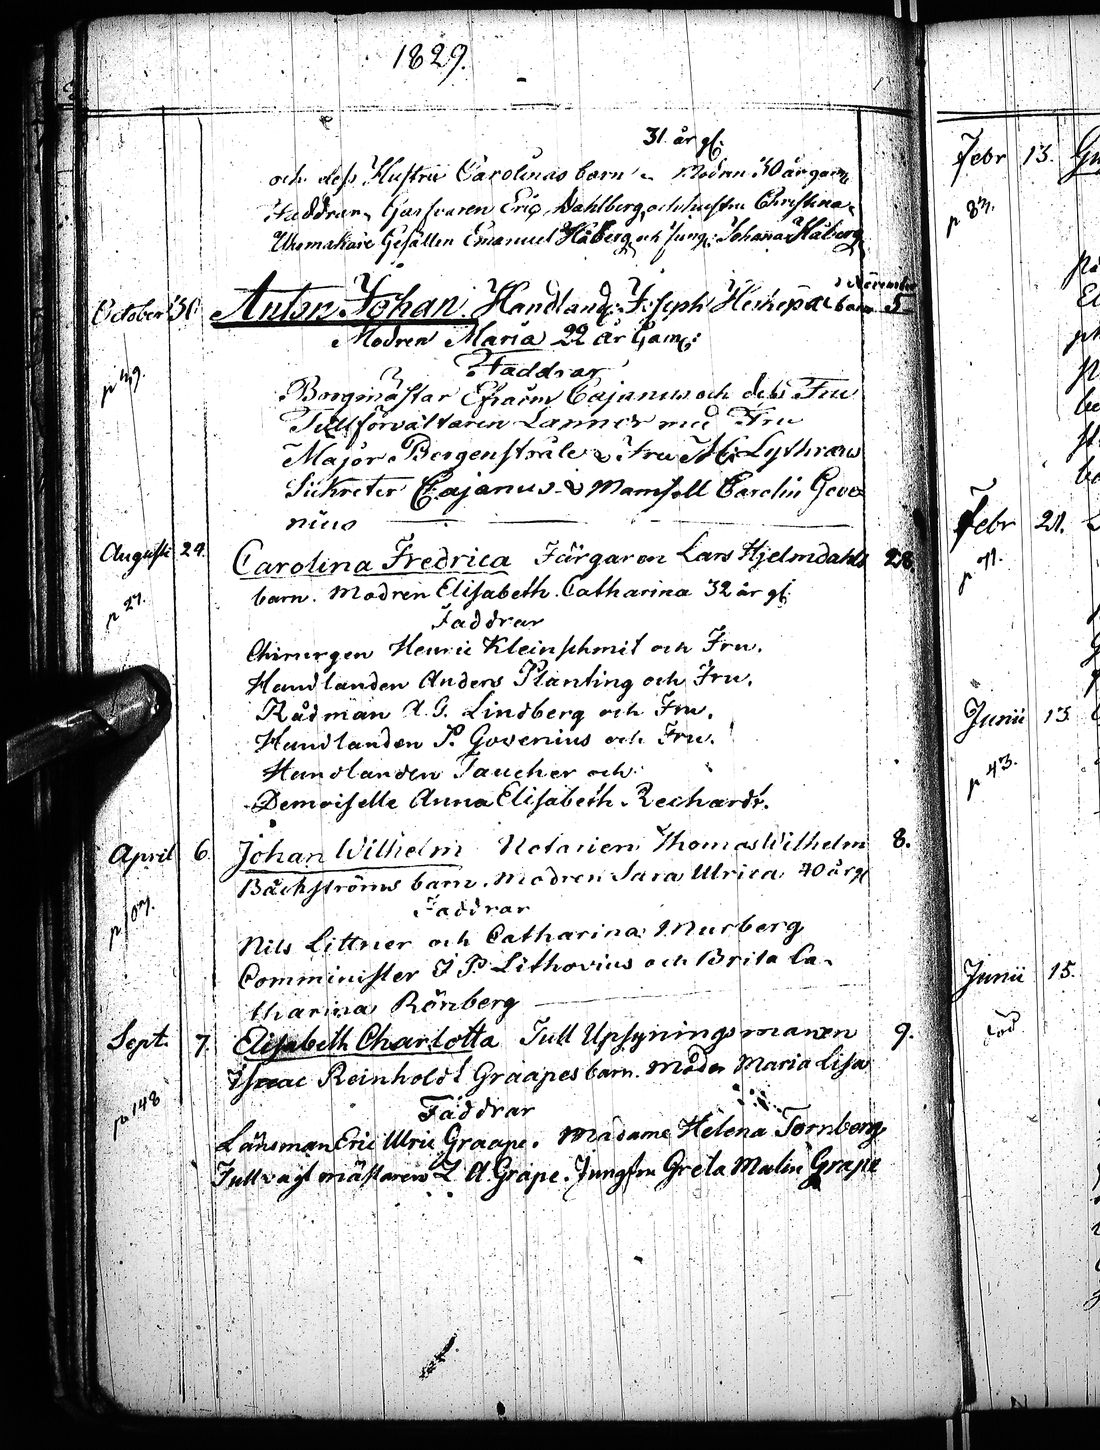 1829.
31. år gl.
och dess Hustru Carolinas barn Modren 30 år gam:
Faddrar, Garfvaren Eric Dahlberg, och hustru Christina
Urmakare Gesällen Emanuel Håberg och Jungf: Johanna Håberg
November
October 30 Anton Johan Handland: Joseph barn 5
Modren Maria 22 år Gam:
p 49.
Faddrar
Borgmästar Efraim Cajanus och dess Fru
Tullförvaltaren Lanner med Fru
Major Bergenstråle & Fru Lythraeus
Sekreter Cajanus & Mamsell Carolin Gove
nius
Augusti 24. Carolina Fredrica Färgaren Lars Hjelmdahls 28.
barn. Modren Elisabeth Catharina 32 år gl.
p 27.
Faddrar
Chirurgen Henric Kleinschmit och Fru.
Handlanden Anders Planting och Fru.
Rådman A. G. Lindberg och Fru.
Handlanden P. Govenius och Fru.
Handlanden Taucher och
Demoiselle Anna Elisabeth Rechardt.
April 6. Johan Wilhelm Notarien Thomas Wilhelm 8.
Bäckströms barn. Modren Sara Ulrica 40 år gl
p 107.
Faddrar
Nils Littner och Catharina Murberg
Comminister J P Lithovius och Brita Ca-
tharina Rönberg
Sept. 7. Elisabeth Charlotta Tull Upsyningsmannen 9.
Isaac Reinhold Graapes barn. Moder Maria Lisa
p 148
Faddrar
Länsman Eric Ulric Graape. Madame Helena Tornberg
Tullvagtmästaren Z A Grape. Jungfru Greta Malin Grape
Febr 13.
p 87.
Febr 21.
p 71.
Junii 13
p 43.
Junii 15.